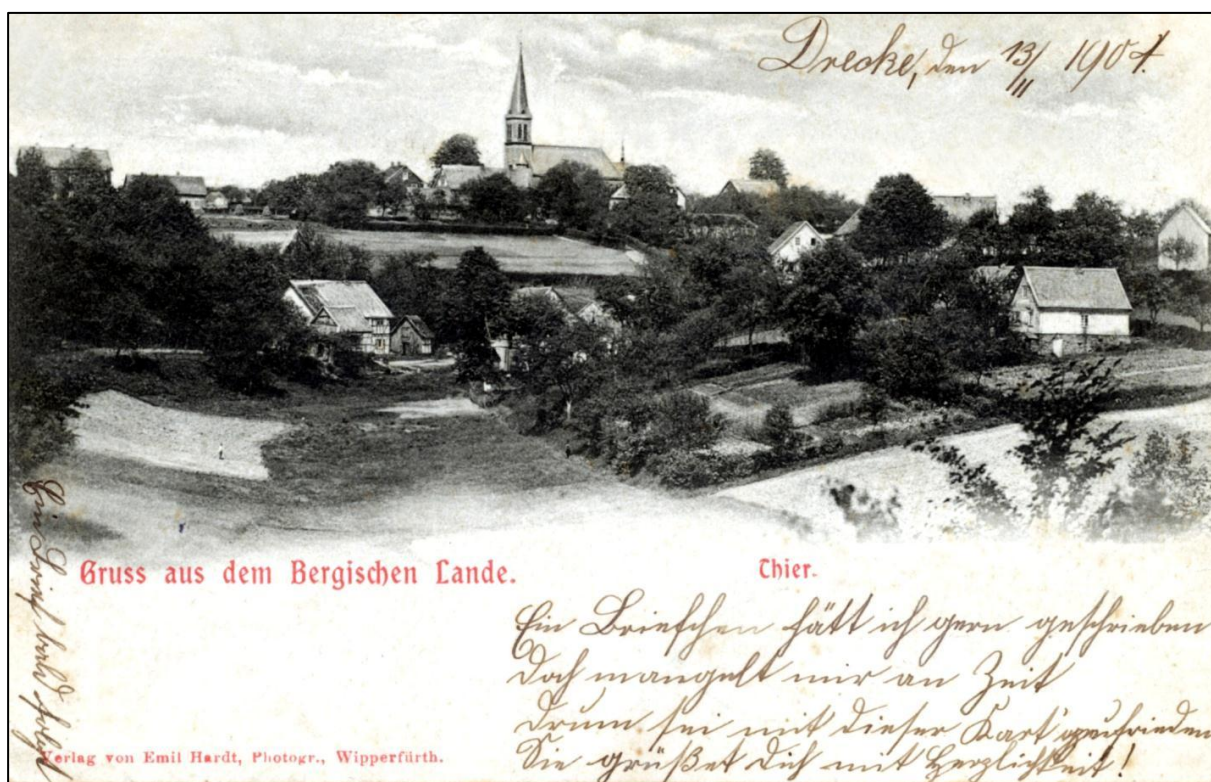 Drecke, den 13/II
Gruss aus dem Bergischen Lande.
Thier.
Ein Briefchen hätt ich gern geschrieben
Doch mangelt mir an Zeit
Drum sei mit dieser Kart' zufrieden
Sie grüßet Dich mit Herzlichkeit!
bald folgt
Verlag von Emil Hardt, Photogr., Wipperfürth.